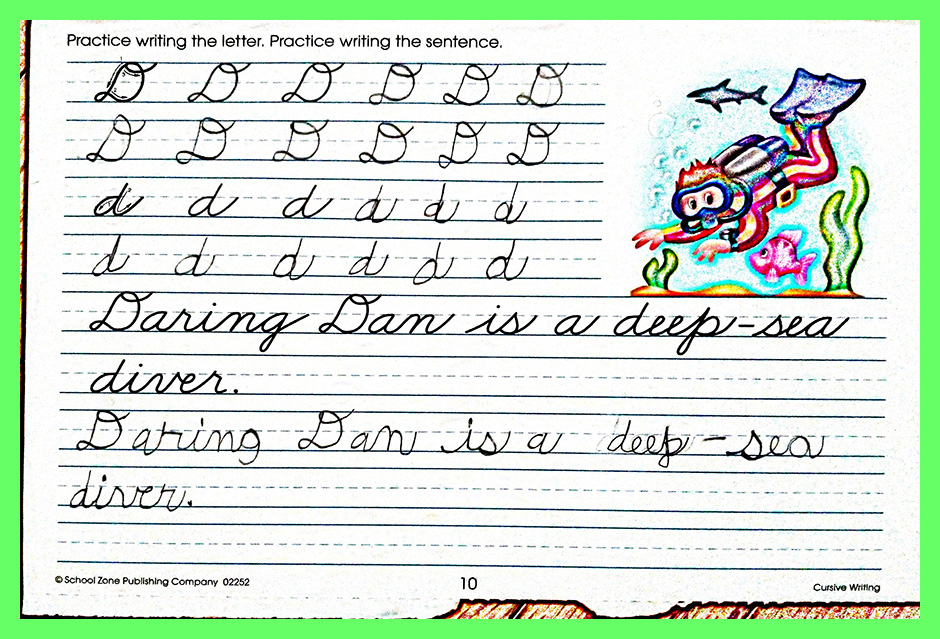 Practice writing the letter. Practice writing the sentence.
D D D D D D
D D D D D D
d d d d d d
d d d d d d
Daring Dan is a deep-sea
diver.
Daring Dan is a deep-sea
diver.
© School Zone Publishing Company 02252 10 Cursive Writing